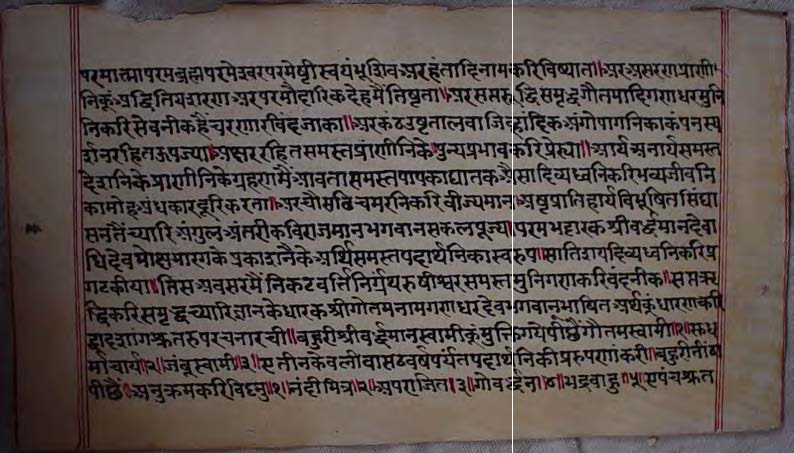 परमात्मा परमब्रह्म परमेश्वर परमेष्ठी स्वयंभू शिव अरहंतादि नाम करि विष्यात॥ अर असरण प्राणी
निकूं अद्वितिय शरण अर परमौदारिक देह मैं तिष्ठता॥ अर सप्तऋद्धि समृद्ध गौतमादि गणधर मुनि
निकरि सेवनीक है चरणारविंद जाका॥ अर कंठ उष्ट तालवा जिव्हादिक अंगोपांगनिका कंपन स्प
र्शन रहित ऊपज्या॥ अक्षर रहित समस्त प्राणीनिके पुन्य प्रभाव करि प्रेर्या॥ आर्य अनार्य समस्त
देशनिके प्राणीनिके ग्रहण मैं आवता समस्त पाप का घातक असा दिव्यध्वनि करि भव्य जीवनि
का मोह अंधकार दूरि करता॥ अर चौसठि चमरनि करि वीज्यमान॥ अष्ट प्रातिहार्य विभूषित सिंघा
सन तें च्यारि अंगुल अंतरीक विराजमान भगवान सकल पूज्य॥ परम भट्टारक श्री वर्द्धमान देवा
धिदेव मोक्ष मारग के प्रकाशनैके अर्थि समस्त पदार्थनिका स्वरुप॥ सातिशय दिव्यध्वनि करि प्र
गट कीया॥ तिस अवसर मैं निकटवर्त्ति निर्ग्रंथ रुषीश्वर समस्त मुनिगण करि वंदनीक॥ सप्तऋ
द्धिकरि समृद्ध च्यारि ज्ञान के धारक श्री गोतम नाम गणधरदेव भगवान भाषित अर्थकूं धारण करि
द्वादशांग श्रुतरुप रचना रची॥ बहुरी श्री वर्द्धमान स्वामीकूं मुक्ति गये पीछैं गौतम स्वामी॥१॥ सुध
र्माचार्य॥२॥ जंबू स्वामी॥३॥ ए तीन केवली वासठ वर्ष पर्यंत पदार्थनिकी प्ररुपणा करी॥ बहुरी
पीछैं॥ अनुक्रम करि विष्णु॥१॥ नंदी मित्र॥२॥ अपराजित॥३॥ गोवर्द्धन॥४॥ भद्रबाहु॥५॥ ए पंच श्रुत